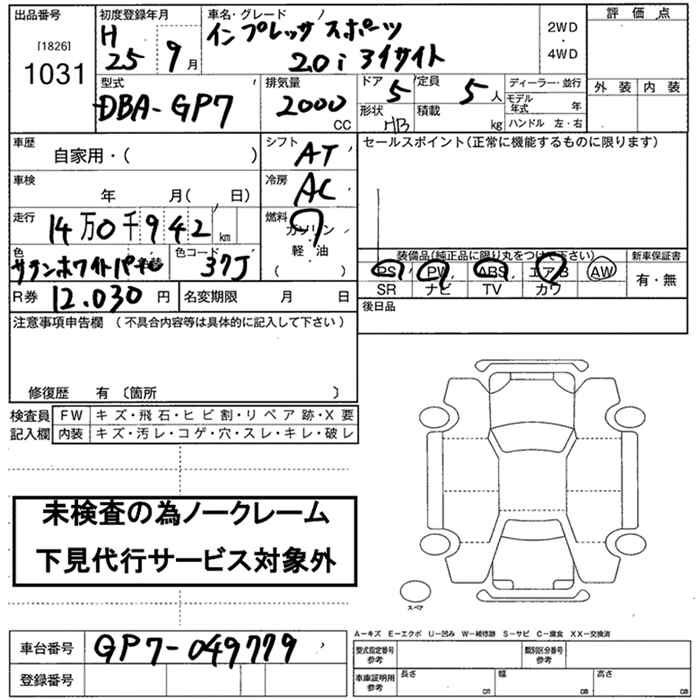 出品番号 初度登録年月 車名・グレード ノ 評価点
[1826] H インプレッサ スポーツ 2WD
1031 25 9月 2.0i アイサイト ・
4WD
型式 排気量 ドア 定員 ディーラー・並行 外装 内装
DBA-GP7 2000 CC 5 5人 モデル年式 年
形状 HB 積載 kg ハンドル 左・右
車歴 シフト セールスポイント(正常に機能するものに限ります)
自家用・( ) AT
車検 冷房
年 月( 日) AC
走行 燃料
14万0千942km ガソリン
色 色コード 軽油
サテンホワイトパール 37J ( )
装備品(純正品に限り丸をつけて下さい) 新車保証書
PS PW ABS エアB AW 有・無
SR ナビ TV カワ
R券 12.030円 名変期限 月 日
後日品
注意事項申告欄 (不具合内容等は具体的に記入して下さい)
修復歴 有 〔箇所 〕
検査員 FW キズ・飛石・ヒビ割・リペア跡・X要
記入欄 内装 キズ・汚レ・コゲ・穴・スレ・キレ・破レ
未検査の為ノークレーム
下見代行サービス対象外
スペア
A-キズ E-エクボ U-凹み W-補修跡 S-サビ C-腐食 XX-交換済
車台番号 GP7-049779
登録番号
型式指定番号 参考 類別区分番号 参考
車庫証明用 参考 長さ cm 幅 cm 高さ cm